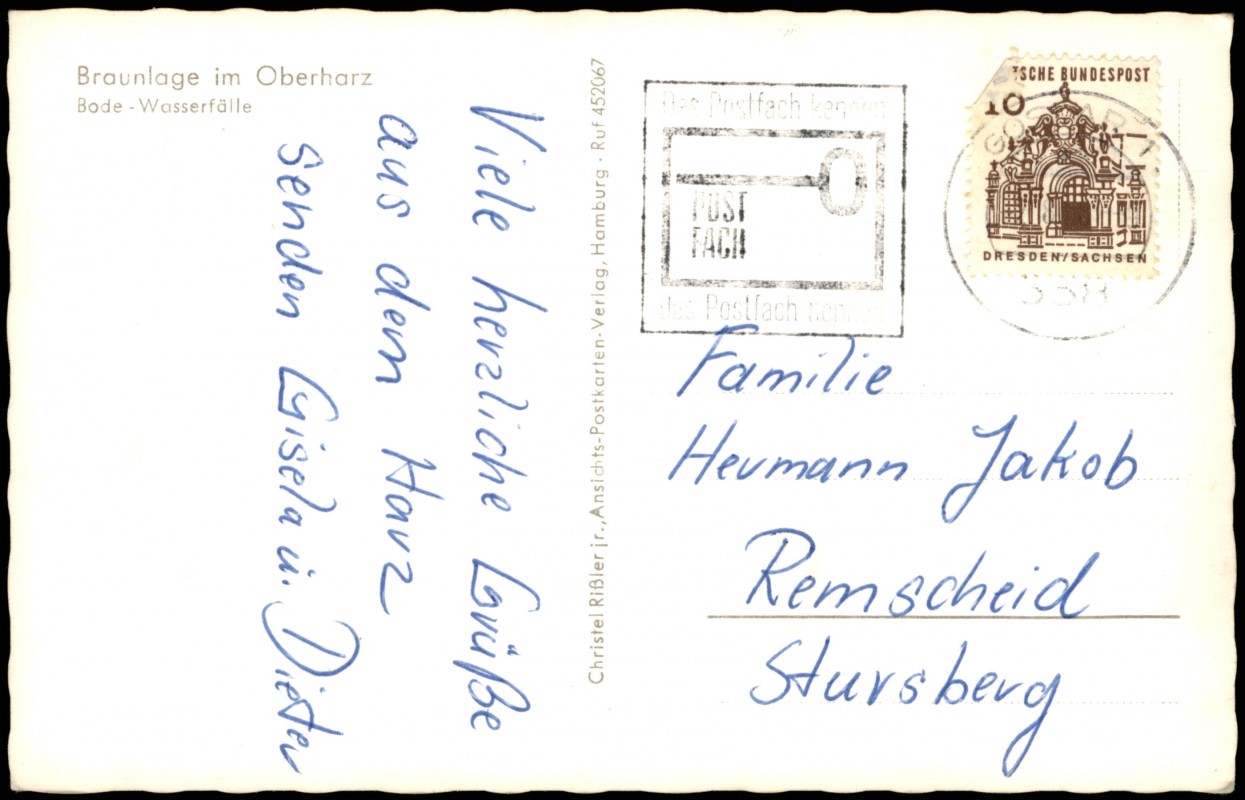 Braunlage im Oberharz
Bode-Wasserfälle
Viele herzliche Grüße
aus dem Harz
senden Gisela u. Dieter
Christel Rißler jr., Ansichts-Postkarten-Verlag, Hamburg · Ruf 452067
Das Postfach kennen
POST
FACH
das Postfach nennen
TSCHE BUNDESPOST
10
DRESDEN/SACHSEN
338
Familie
Hermann Jakob
Remscheid
Stursberg